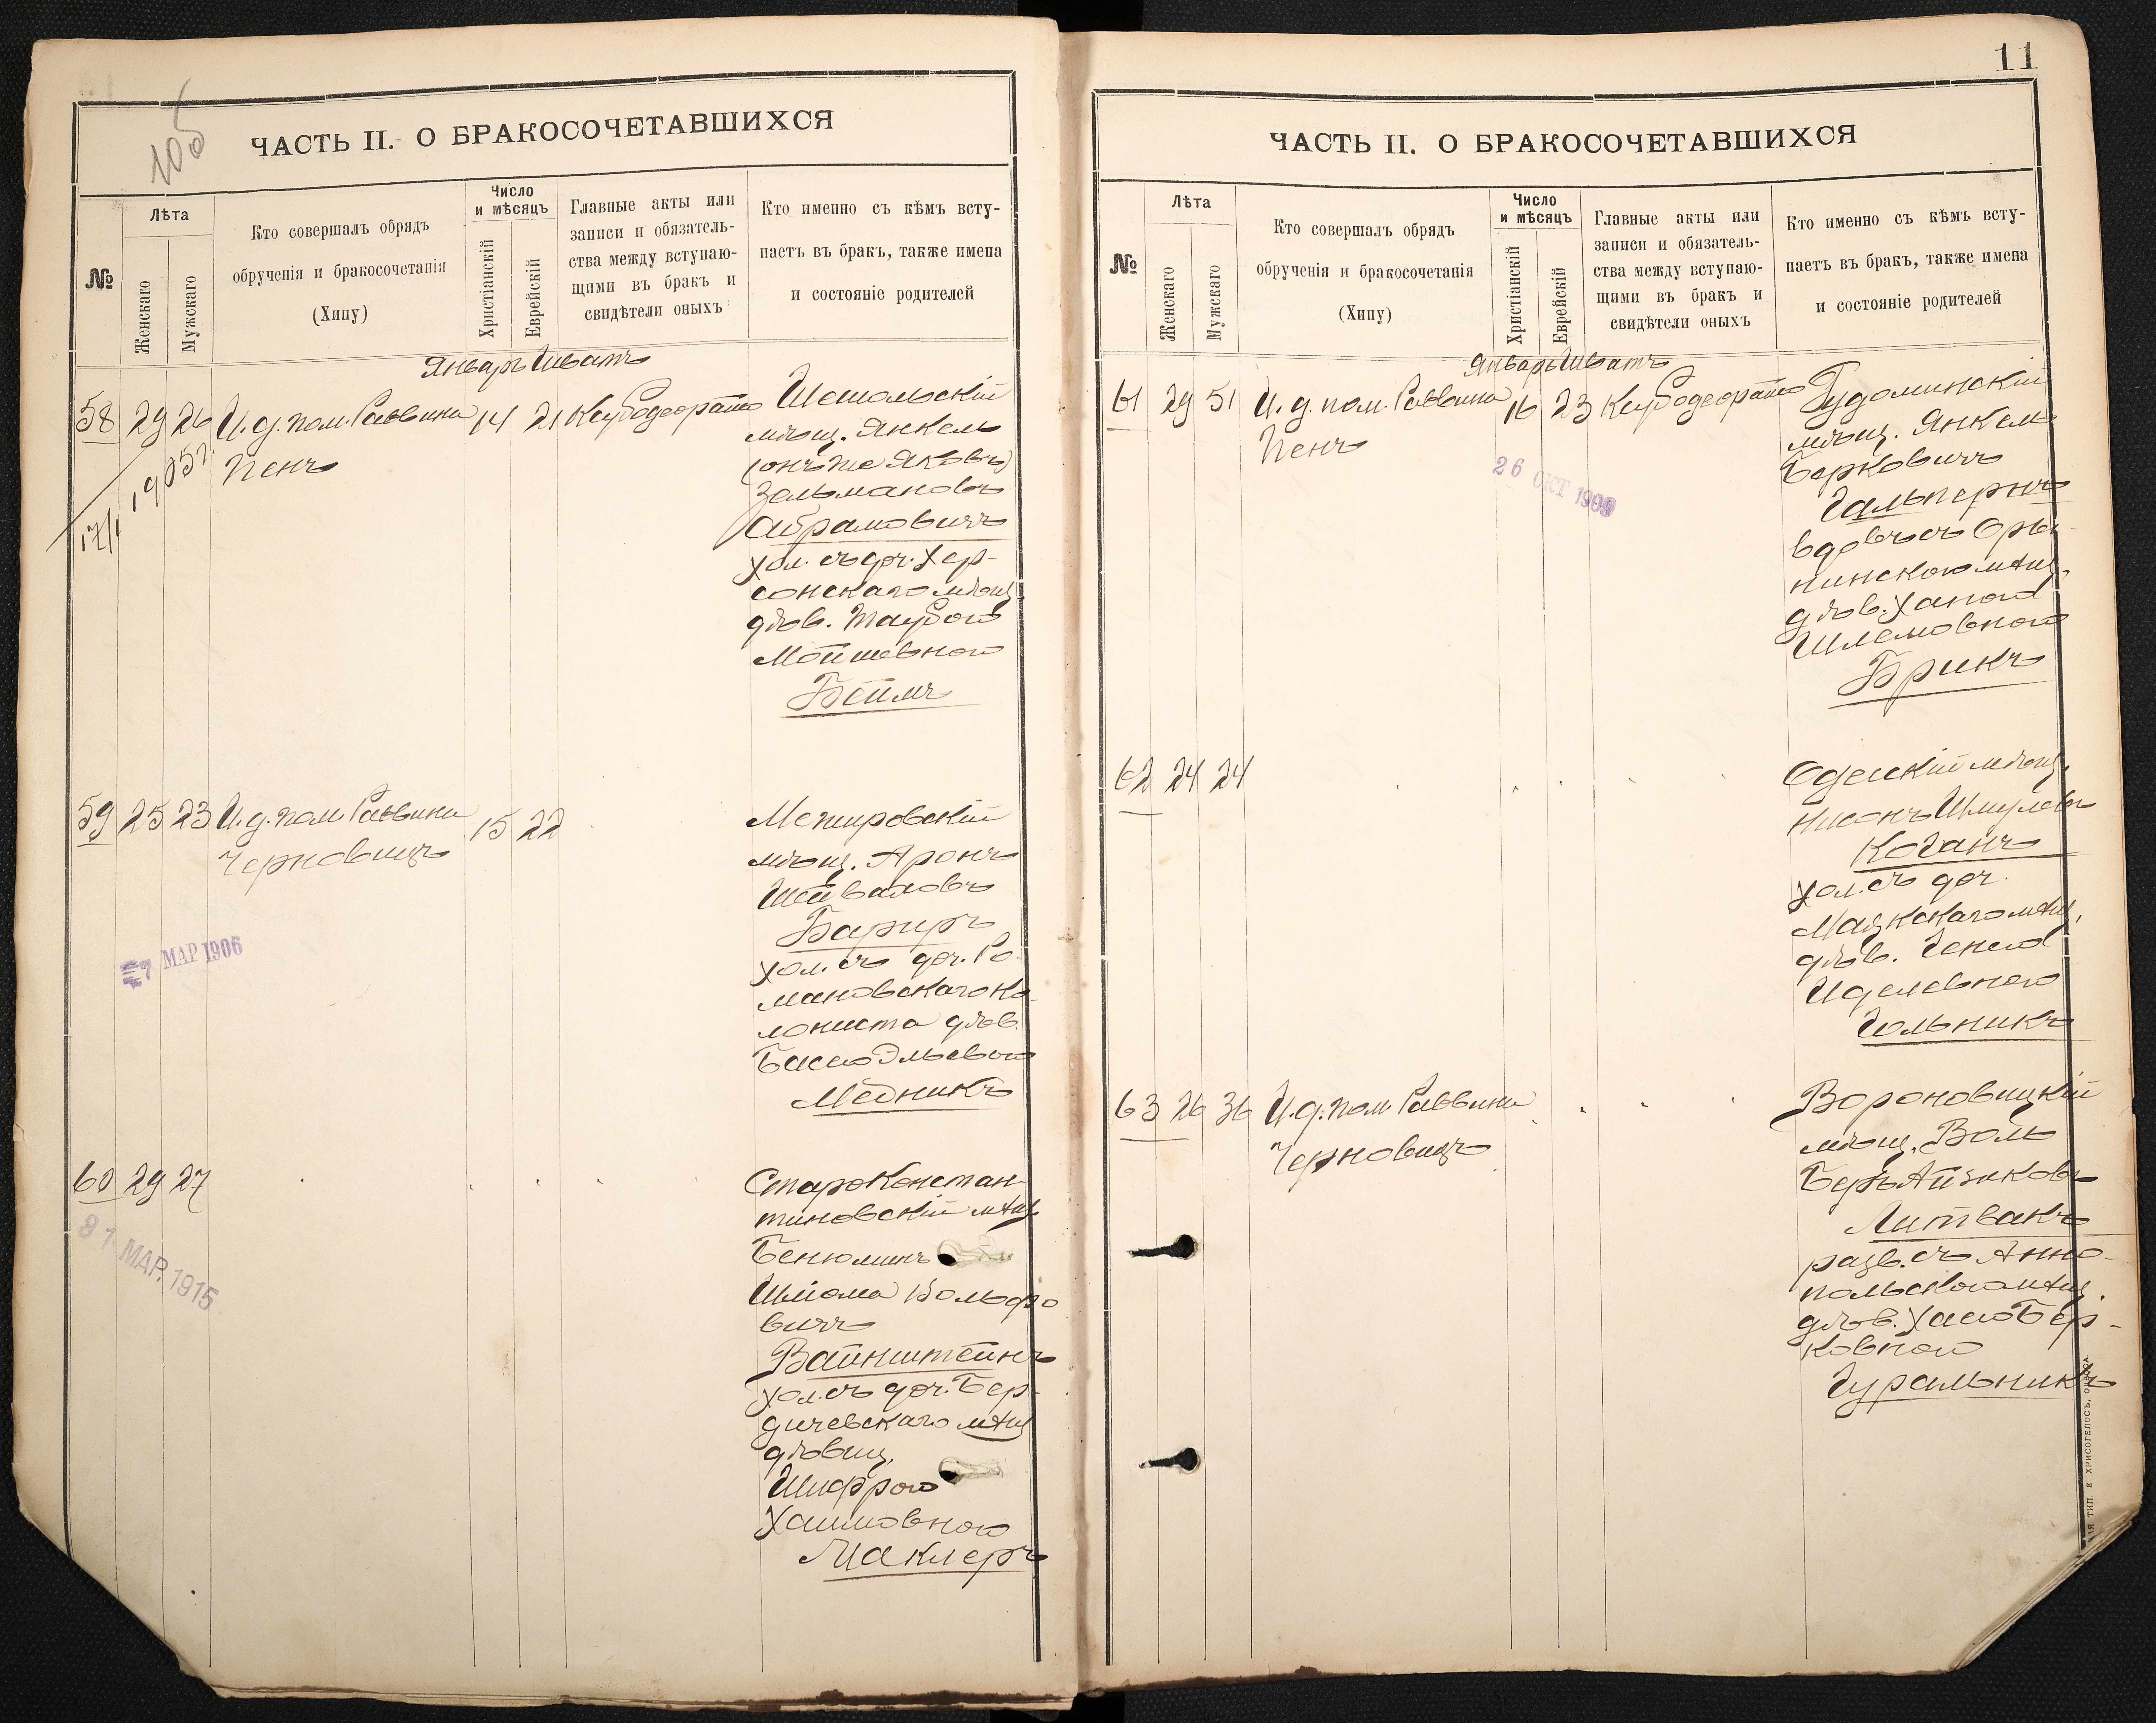 105
ЧАСТЬ II. О БРАКОСОЧЕТАВШИХСЯ
№
Лѣта
Женскаго
Мужскаго
Кто совершалъ обрядъ
обрученія и бракосочетанія
(Хипу)
Число
и мѣсяцъ
Христіанскій
Еврейскій
Главные акты или
записи и обязатель-
ства между вступаю-
щими въ бракъ и
свидѣтели оныхъ
Кто именно съ кѣмъ всту-
паетъ въ бракъ, также имена
и состояніе родителей
Январь Шватъ
58 29 26 И. д. пом. Раввина 14 21
Пенъ
мѣщ. Янкель
(онъ же Яковъ)
Зельмановъ
Абрамовичъ
хол. съ доч. Хер-
сонскаго мѣщ.
дѣв. Таубою
Мойшевною
Беймъ
59 25 23 И. д. пом. Раввина 15 22
Черновицъ
Межировскій
мѣщ. Аронъ
Шеваховъ
Бариръ
хол. съ доч. Ро-
мановскаго ко-
лониста дѣв.
Басею Эльевною
Медникъ
7 МАР 1906
60 29 27
Староконстан-
тиновскій мѣщ.
Бенюминъ
Шлiома Вольфо
вичъ
Вайнштейнъ
хол. съ доч. Бер-
дичевскаго мѣщ.
дѣвиц.
Шифрою
Хаимовною
Маклеръ
31 МАР. 1915
11
ЧАСТЬ II. О БРАКОСОЧЕТАВШИХСЯ
№
Лѣта
Женскаго
Мужскаго
Кто совершалъ обрядъ
обрученія и бракосочетанія
(Хипу)
Число
и мѣсяцъ
Христіанскій
Еврейскій
Главные акты или
записи и обязатель-
ства между вступаю-
щими въ бракъ и
свидѣтели оныхъ
Кто именно съ кѣмъ всту-
паетъ въ бракъ, также имена
и состояніе родителей
Январь Шватъ
61 29 51 И. д. пом. Раввина 16 23
Пенъ
26 ОКТ 1909
Гудоминскій
мѣщ. Янкель
Берковичъ
Гальперинъ
вдовъ съ Оры-
нинскою мѣщ.
дѣв. Ханою
Шлемовною
Брикъ
62 24 24
Одесскій мѣщ.
Нисонъ Шмулевъ
Коганъ
хол. съ доч.
Маякскаго мѣщ.
дѣв. Генею
Иделевною
Гольникъ
63 26 36 И. д. пом. Раввина
Черновицъ
Вороновицкій
мѣщ. Воль
Беръ Айзиковъ
Литвакъ
разв. съ Анно-
польскою мѣщ.
дѣв. Хасею Бер-
ковною
Гуральникъ
ТИП. Е ХРИСОГЕЛОСЪ, ОДЕССА